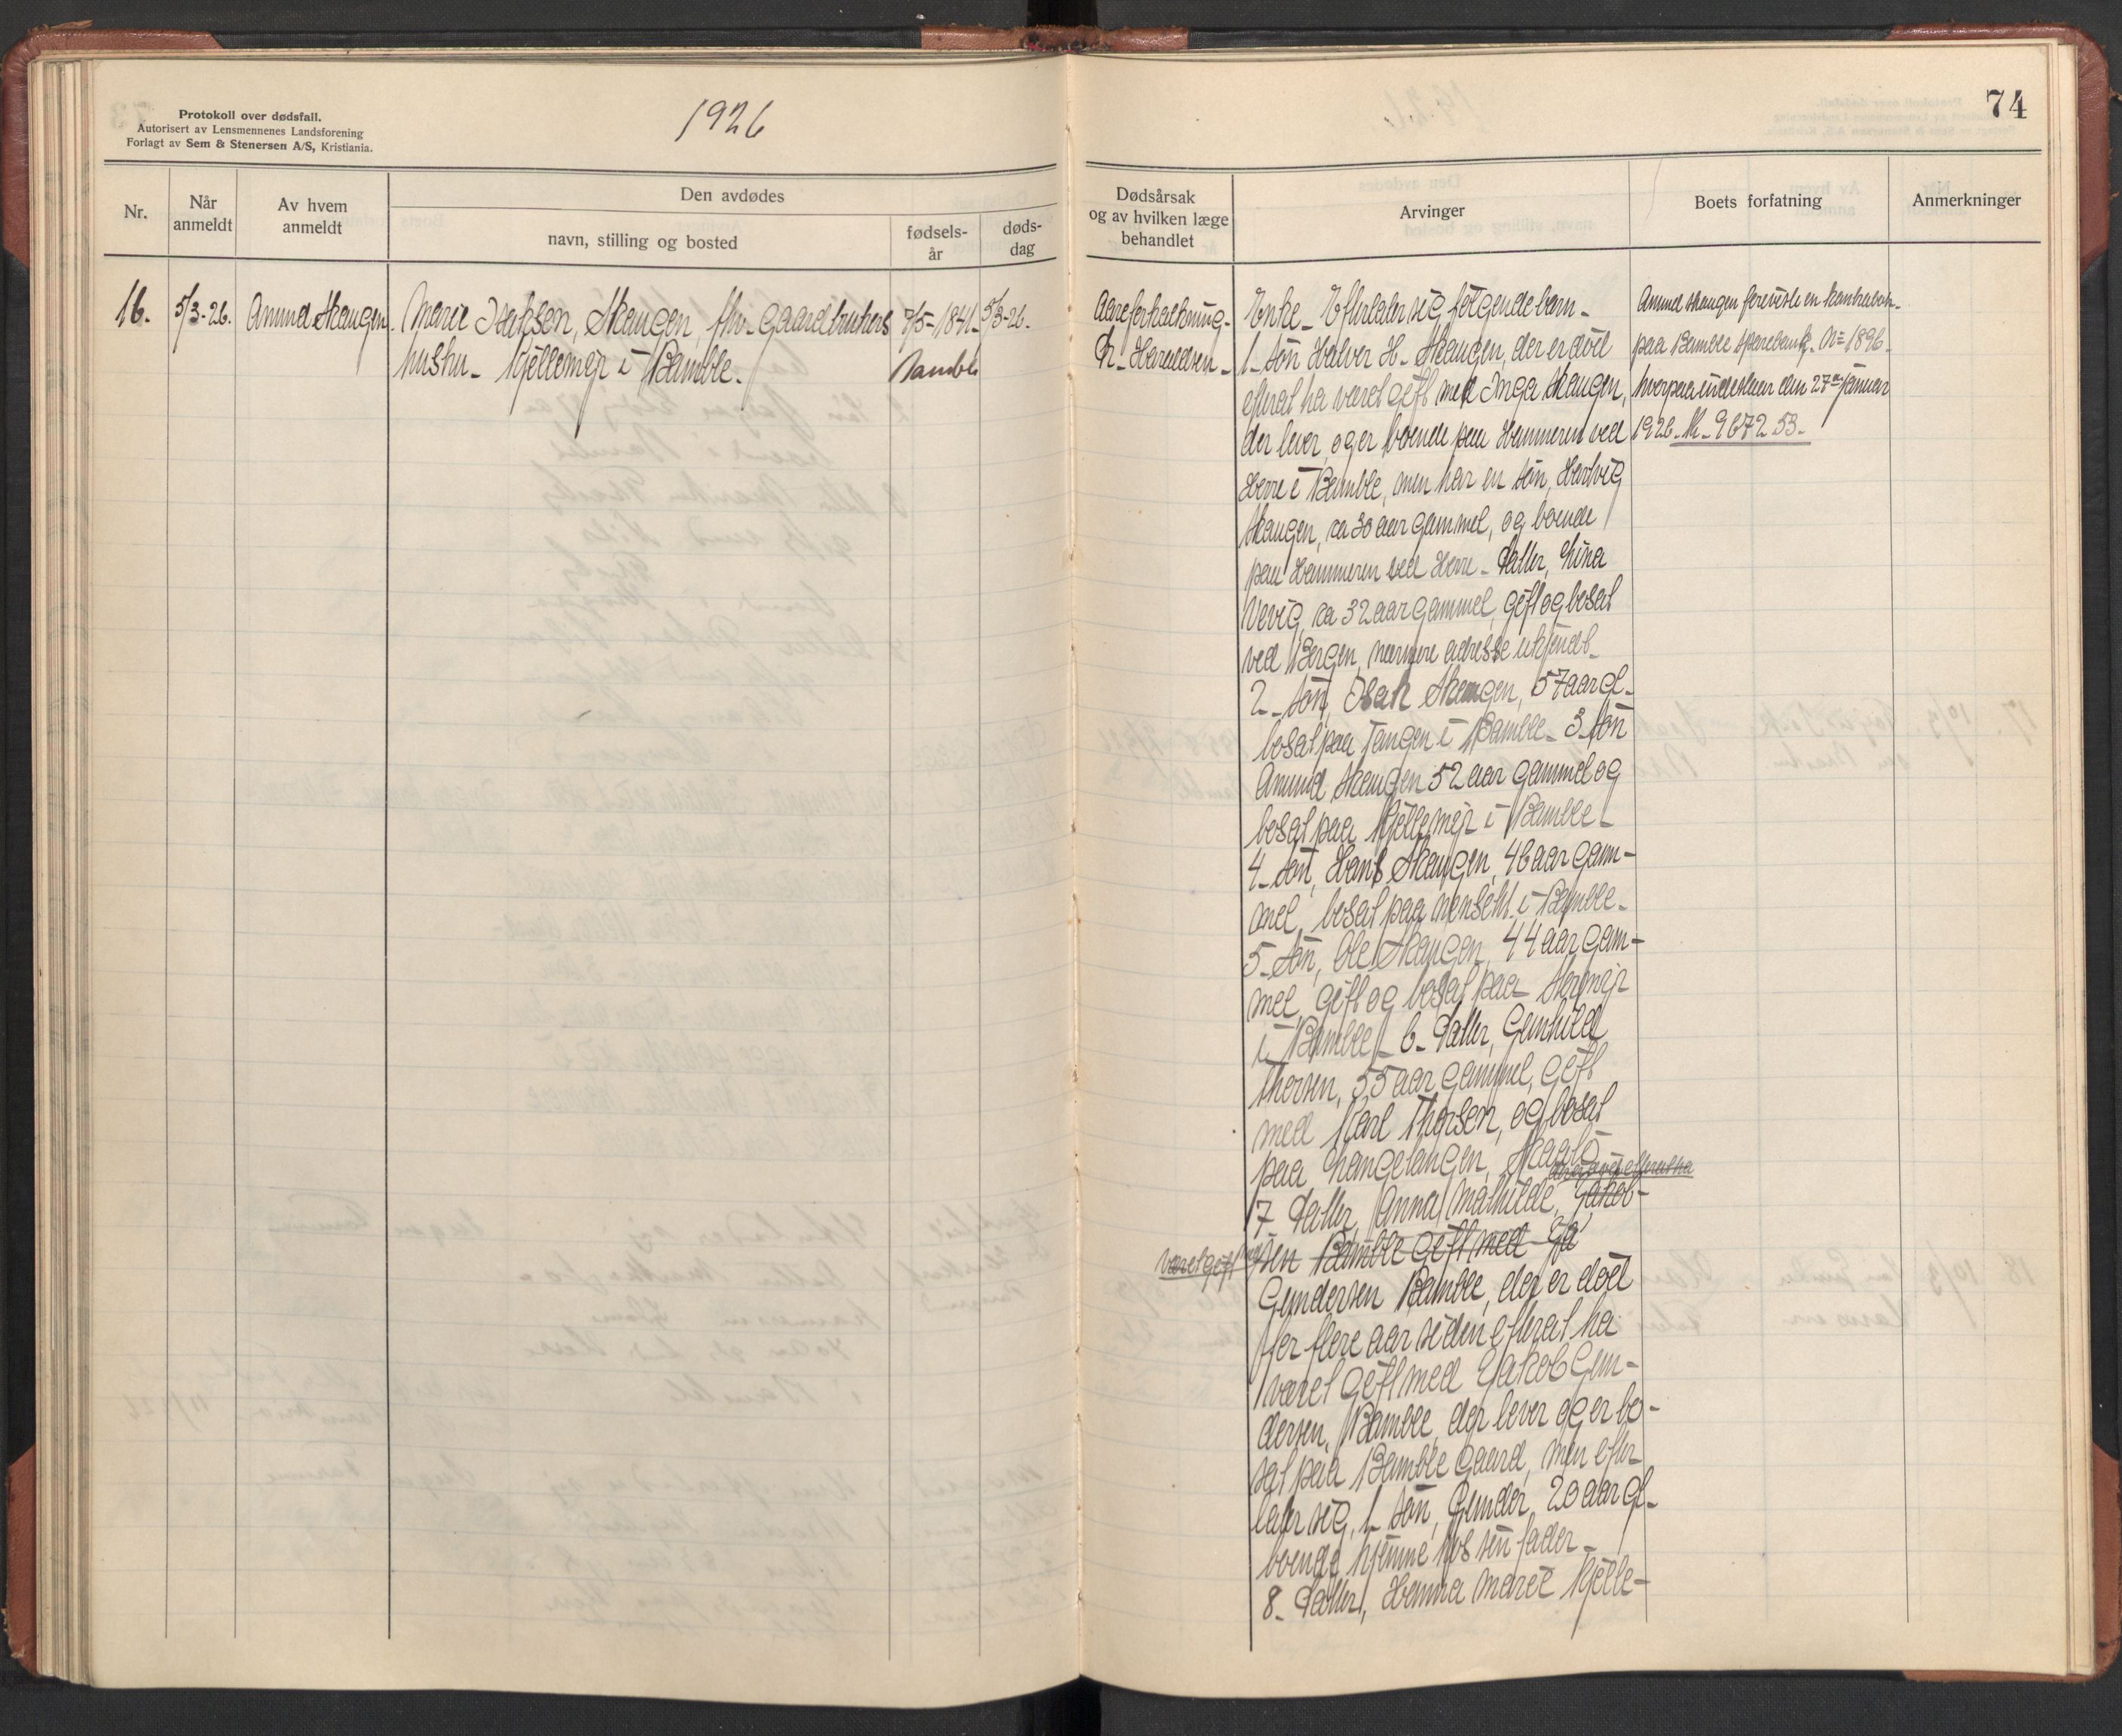 Protokoll over dødsfall.
Autorisert av Lensmennenes Landsforening
Forlagt av Sem & Stenersen A/S, Kristiania.
1926
Nr.
Når
anmeldt
Av hvem
anmeldt
Den avdødes
navn, stilling og bosted
fødsels-
år
døds-
dag
16.
5/3-26.
Amund Skaugen.
Marie Isaksen, Skaugen, fhv. Gaardbrukers
hustru - Kjellemyr i Bamble.
7/5-1841.
Bamble
5/3-26.
74
Dødsårsak
og av hvilken læge
behandlet
Arvinger
Boets forfatning
Anmerkninger
Aareforkalkning.
Dr. Haraldsen.
Enke - Efterlater sig følgende barn -
1 - Søn Halvor H. Skaugen, der er død
efterat ha været gift med Inga Skaugen,
der lever, og er boende paa Hammeren ved
Herre i Bamble, men har en søn, Hartvig
Skaugen, ca 30 aar gammel, og boende
paa Hammeren ved Herre - Datter,
ca 32 aar gammel, gift og bosat
ved Bergen, nærmere adresse ukjendt -
2 - Søn, Isak Skaugen, 57 aar gl.
bosat paa Tangen i Bamble - 3. Søn
Amund Skaugen 52 aar gammel og
bosat paa Kjellemyr i Bamble -
4 - Søn, Hans Skaugen, 46 aar gam-
mel, bosat paa i Bamble -
5 - Søn, Ole Skaugen, 44 aar gam-
mel, gift og bosat paa
i Bamble - 6 - Datter, Gunhild
Thorsen, 55 aar gammel, gift
med Karl Thorsen, og bosat
paa Langetangen, Skaatø
der er død efterat ha
7 Datter, Anna Mathilde, Jakob-
været gift med
sen Bamble gift med Ja
Gundersen Bamble, der er død
for flere aar siden efterat ha
været gift med Jakob Gun-
dersen, Bamble, der lever og er bo-
sat paa Bamble Gaard, men efter-
later sig, 1 søn, Gunder, 20 aar gl.
boende hjemme hos sin fader -
8 - Datter, Hanna Marie Kjelle-
Amund Skaugen foreviste en kontrabok
paa Bamble Sparebank. No 1896.
hvorpaa indestaar den 27de Januar
1926. Kr. 9672 53.